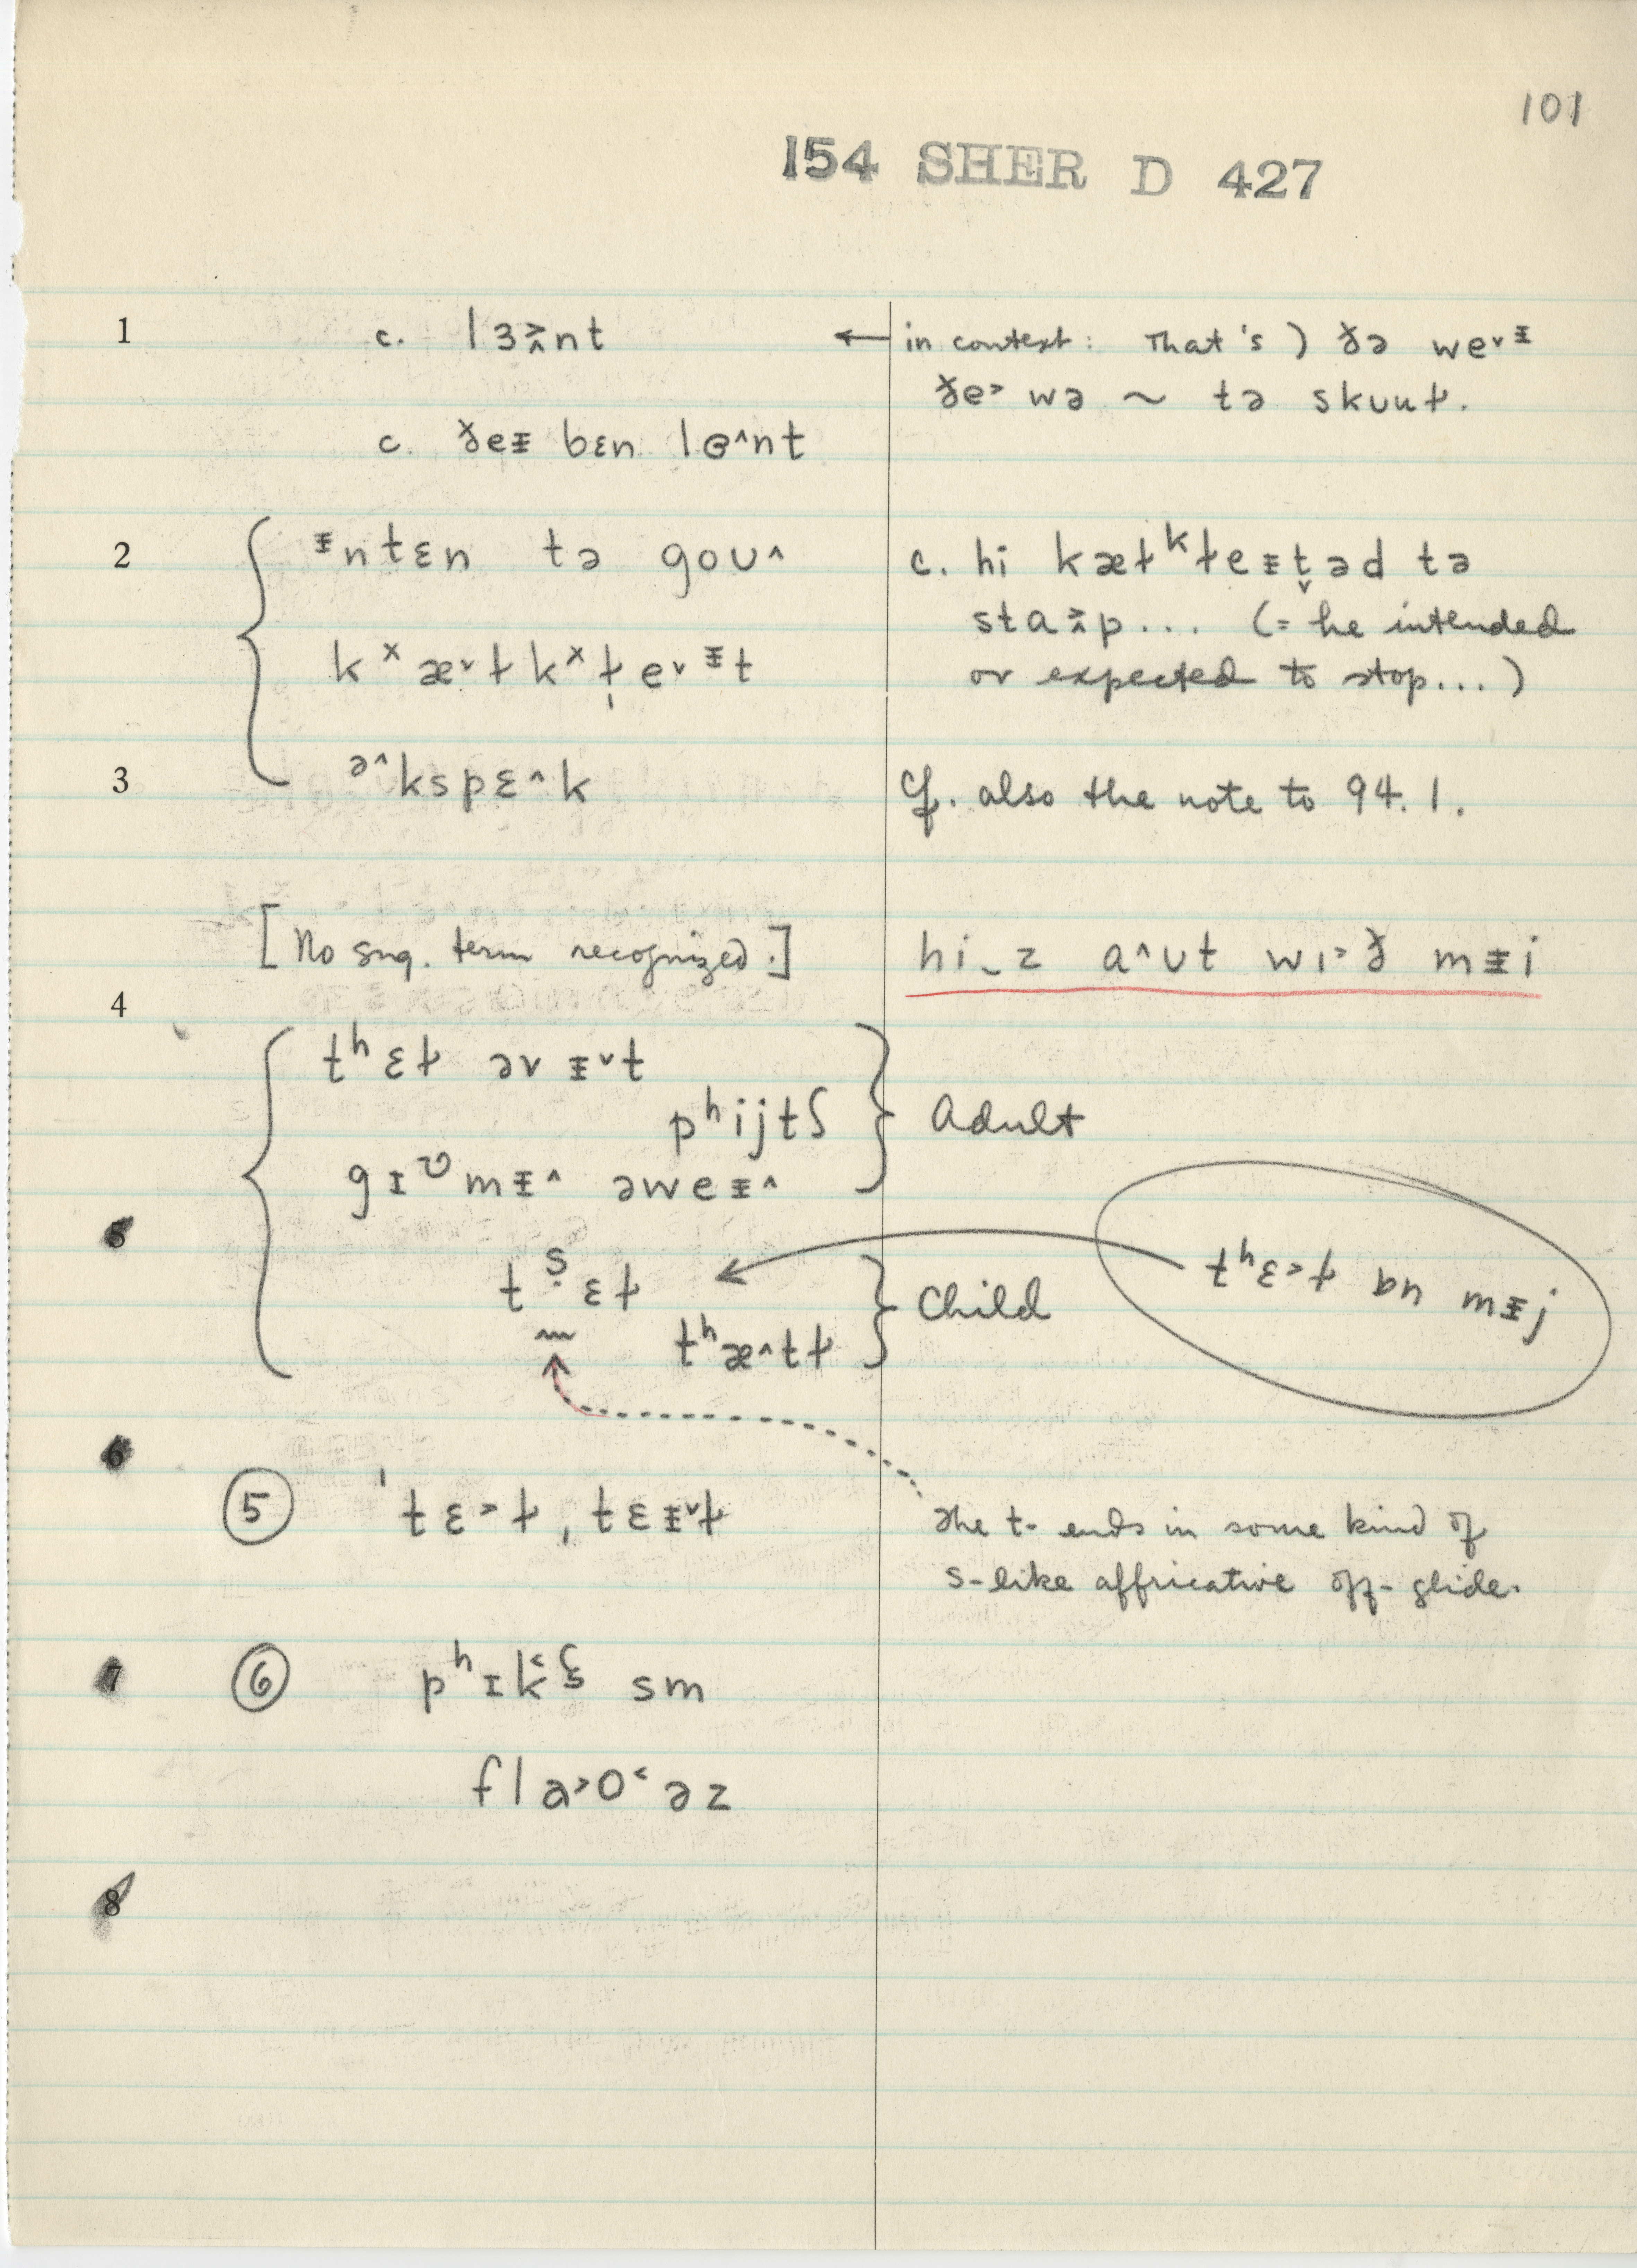 101
154 SHER D 427
1 c. lɜ˃˄nt ← in context: That's ) ɣ̵ə we˅ᵻ
ɣ̵e˃ wə ~ tə skuuɫ.
c. ɣ̵eᵻ bɛn lɵ˄nt
2 ᵻntɛn tə goʊ˄
c. hi kæɫᵏɫeᵻt̬əd tə
kˣæ˅ɫkˣɫ̩e˅ᵻt
sta˃˄p... (= he intended
or expected to stop...)
3 ə˄kspɛ˄k
cf. also the note to 94.1.
[No sug. term recognized.]
hi‿z a˄ʊt wɪ˃ɣ̵ mᵻi
4
tʰɛɫ əv ᵻ˅t
pʰijtʃ
gɪᶹmᵻ˄ əweᵻ˄
Adult
5
tˢ̣ɛɫ
tʰæ˄tɫ
Child
tʰɛ˃ɫ ɒn mᵻj
6
⑤ ˈtɛ˃ɫ, tɛᵻ˅ɫ
The t- ends in some kind of
s-like affricative off-glide.
7 ⑥ pʰɪk̂ʢ sm
fla˃o˂əz
8